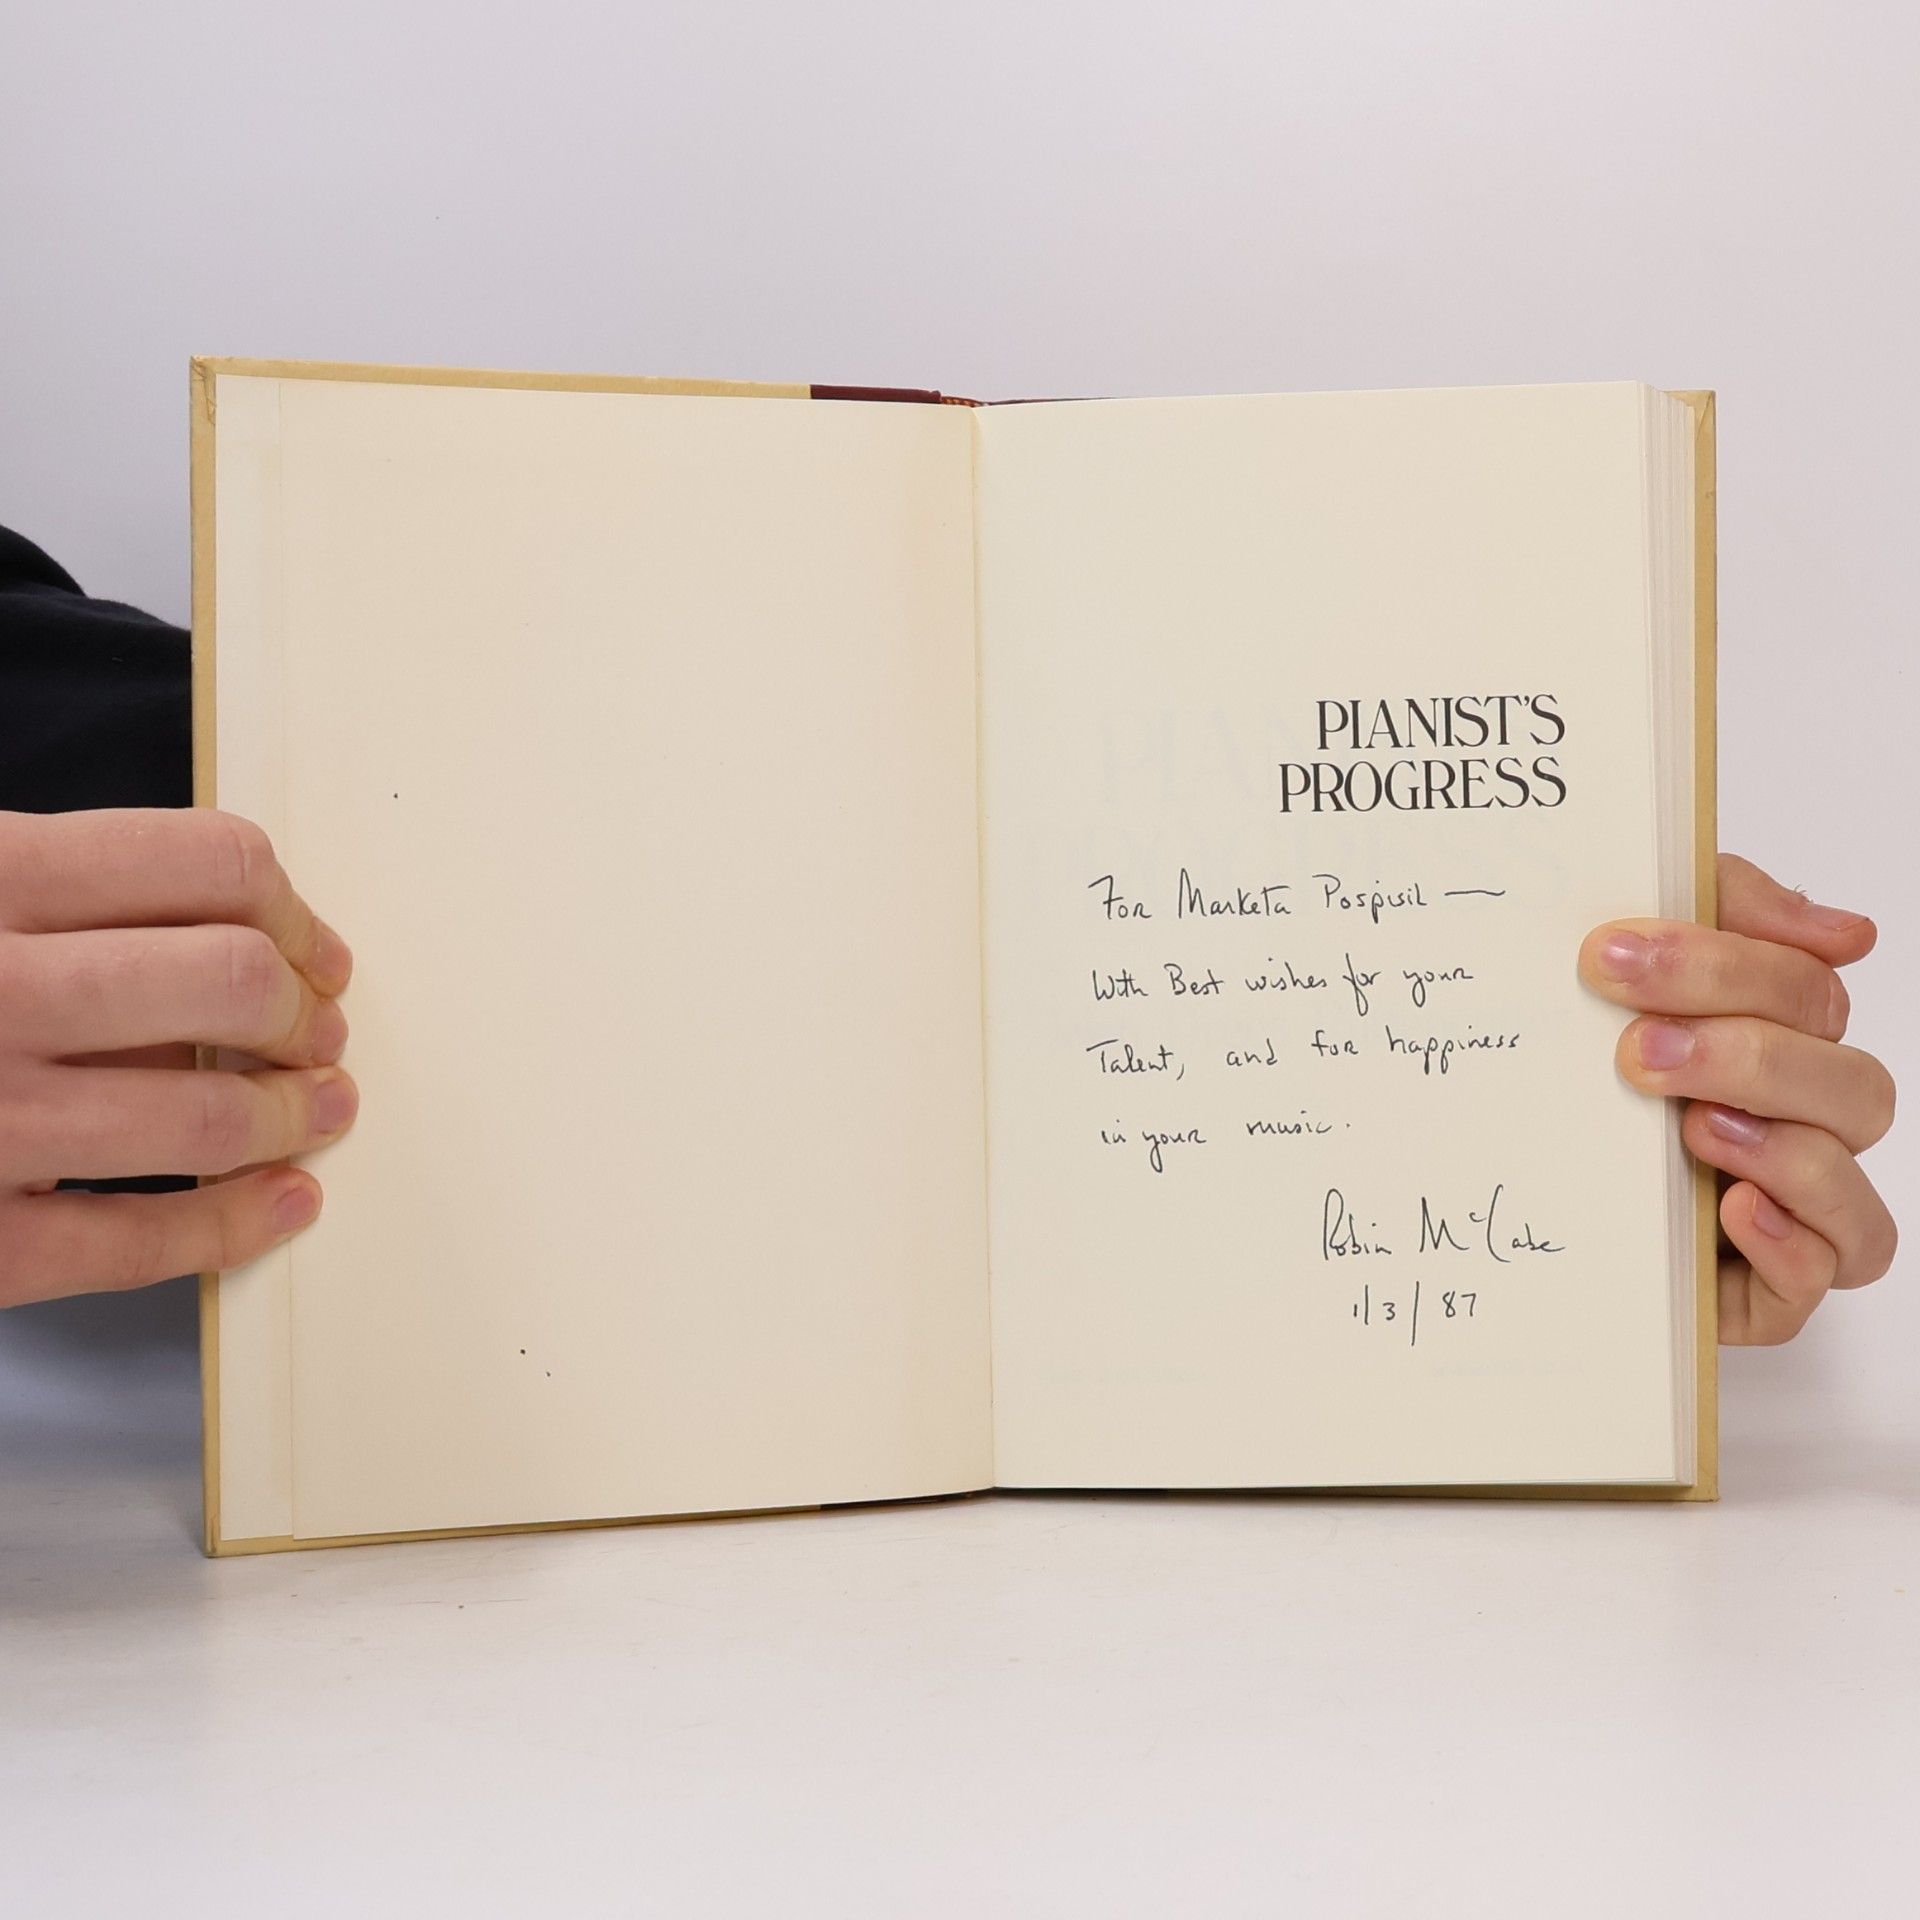 PIANIST'S
PROGRESS
For Marketa Pospisil —
With Best wishes for your
Talent, and for happiness
in your music.
Robin McCabe
1/3/87